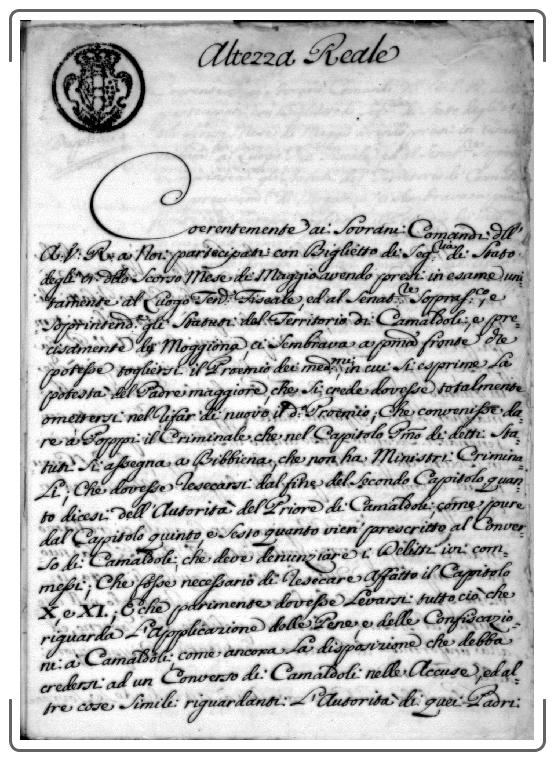 Altezza Reale
Coerentemente ai Sovrani Comandi dell'
A. V. R. a Noi partecipati con Biglietto di Seg.ria di Stato
degli dello Scorso Mese di Maggio avendo presi in esame uni-
tamente al Luogo Ten.te Fiscale, ed al Senat.re Sopras.co, e
Soprintend.e gli Statuti del Territorio di Camaldoli, e pre-
cisamente di Moggiona, ci Sembrava a pma fronte che
potesse togliersi il Proemio dei med.mi in cui si esprime La
potestà del Padre maggiore, che Si crede dovesse totalmente
omettersi nel rifar di nuovo il d.o Proemio; Che convenisse da-
re a Poppi il Criminale che nel Capitolo Pmo di detti Sta-
tuti Si assegna a Bibbiena, che non ha Ministri Crimina-
Li; Che dovesse resecarsi dal fine del Secondo Capitolo quan-
to dicesi dell'Autorità del Priore di Camaldoli, come pure
dal Capitolo quinto e Sesto quanto vien prescritto al Conver-
so di Camaldoli, che deve denunziare i Delitti ivi com-
messi; Che fosse necessario di resecare affatto il Capitolo
X, e XI.; E che parimente dovesse Levarsi tutto ciò che
riguarda L'Applicazione delle Pene, e delle Confiscazio-
ni a Camaldoli, come ancora La disposizione che debba
credersi ad un Converso di Camaldoli nelle Accuse, ed al-
tre cose Simili riguardanti L'Autorità di quei Padri.